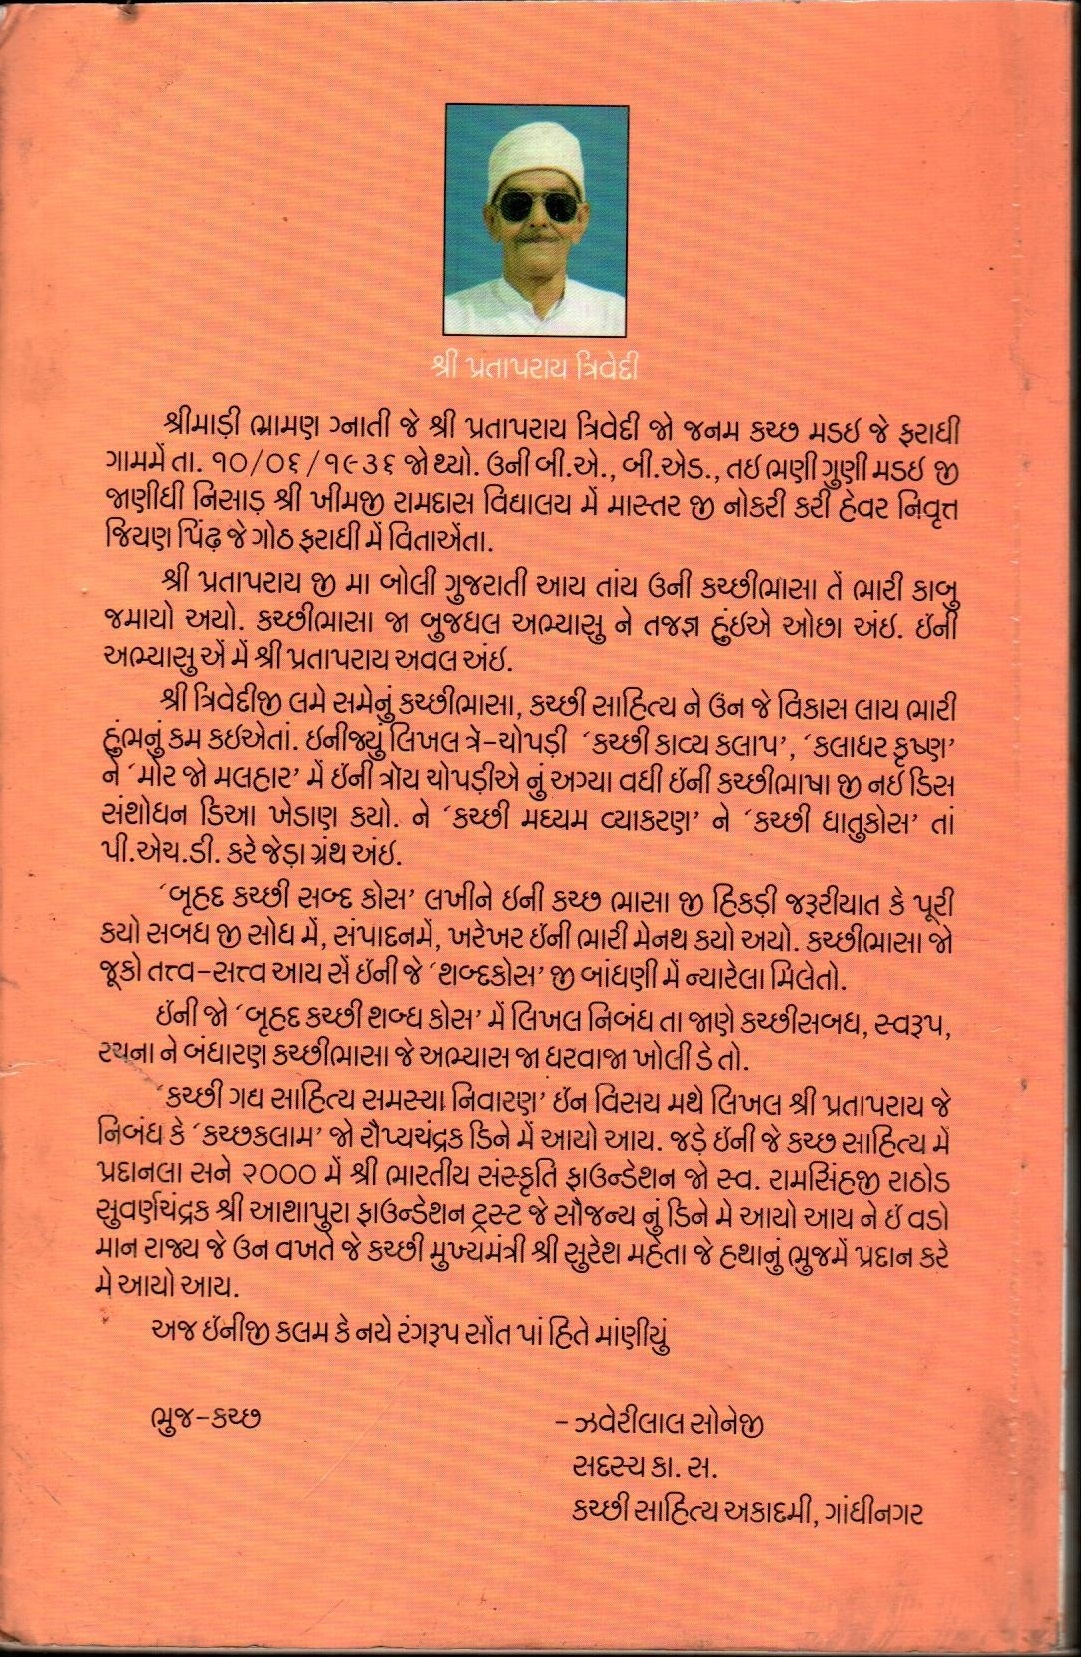 શ્રી પ્રતાપરાય ત્રિવેદી
શ્રીમાડી ભ્રામણ ગ્નાતી જે શ્રી પ્રતાપરાય ત્રિવેદી જો જનમ કચ્છ મડઇ જે ફરાધી
ગામમેં તા. ૧૦/૦૬/૧૯૩૬ જો થ્યો. ઉની બી.એ., બી.એડ., તઇ ભણી ગુણી મડઇ જી
જાણીધી નિસાડ શ્રી ખીમજી રામદાસ વિદ્યાલય મેં માસ્તર જી નોકરી કરી હેવર નિવૃત્ત
જિયણ પિંઢ જે ગોઠ ફરાધી મેં વિતાએંતા.
શ્રી પ્રતાપરાય જી મા બોલી ગુજરાતી આય તાંય ઉની કચ્છીભાસા તેં ભારી કાબુ
જમાયો અયો. કચ્છીભાસા જા બુજધલ અભ્યાસુ ને તજજ્ઞ હુંઇએ ઓછા અંઇ. ઇંની
અભ્યાસુ એં મેં શ્રી પ્રતાપરાય અવલ અંઇ.
શ્રી ત્રિવેદીજી લમે સમેનું કચ્છીભાસા, કચ્છી સાહિત્ય ને ઉન જે વિકાસ લાય ભારી
હુંભનું કમ કઇએતાં. ઇનીજ્યું લિખલ ત્રે-ચોપડી ‘કચ્છી કાવ્ય કલાપ’, ‘કલાધર કૃષ્ણ’
ને ‘મોર જો મલહાર’ મેં ઇંની ત્રોય ચોપડીએ નું અગ્યા વધી ઇંની કચ્છીભાષા જી નઇં ડિસ
સંશોધન ડિઆ ખેડાણ કયો. ને ‘કચ્છી મધ્યમ વ્યાકરણ’ ને ‘કચ્છી ધાતુકોસ’ તાં
પી.એચ.ડી. કરે જેડા ગ્રંથ અંઇ.
‘બૃહદ કચ્છી સબ્દ કોસ’ લખીને ઇની કચ્છ ભાસા જી હિકડી જરૂરીયાત કે પૂરી
કયો સબધ જી સોધ મેં, સંપાદનમેં, ખરેખર ઇંની ભારી મેનથ કયો અયો. કચ્છીભાસા જો
જૂકો તત્ત્વ-સત્ત્વ આય સેં ઇંની જે ‘શબ્દકોસ’ જી બાંધણી મેં ન્યારેલા મિલેતો.
ઇંની જો ‘બૃહદ કચ્છી શબ્ધ કોસ’ મેં લિખલ નિબંધ તા જાણે કચ્છીસબધ, સ્વરૂપ,
રચના ને બંધારણ કચ્છીભાસા જે અભ્યાસ જા ધરવાજા ખોલી ડે તો.
‘કચ્છી ગદ્ય સાહિત્ય સમસ્યા નિવારણ’ ઇંન વિસય મથે લિખલ શ્રી પ્રતાપરાય જે
નિબંધ કે ‘કચ્છકલામ’ જો રૌપ્યચંદ્રક ડિને મેં આયો આય. જડે ઇંની જે કચ્છ સાહિત્ય મેં
પ્રદાનલા સને ૨૦૦૦ મેં શ્રી ભારતીય સંસ્કૃતિ ફાઉન્ડેશન જો સ્વ. રામસિંહજી રાઠોડ
સુવર્ણચંદ્રક શ્રી આશાપુરા ફાઉન્ડેશન ટ્રસ્ટ જે સૌજન્ય નું ડિને મે આયો આય ને ઇં વડો
માન રાજ્ય જે ઉન વખતે જે કચ્છી મુખ્યમંત્રી શ્રી સુરેશ મહેતા જે હથાનું ભુજમેં પ્રદાન કરે
મે આયો આય.
અજ ઇંનીજી કલમ કે નયે રંગરૂપ સોંત પાં હિતે માંણીયું
ભુજ-કચ્છ
– ઝવેરીલાલ સોનેજી
સદસ્ય કા. સ.
કચ્છી સાહિત્ય અકાદમી, ગાંધીનગર